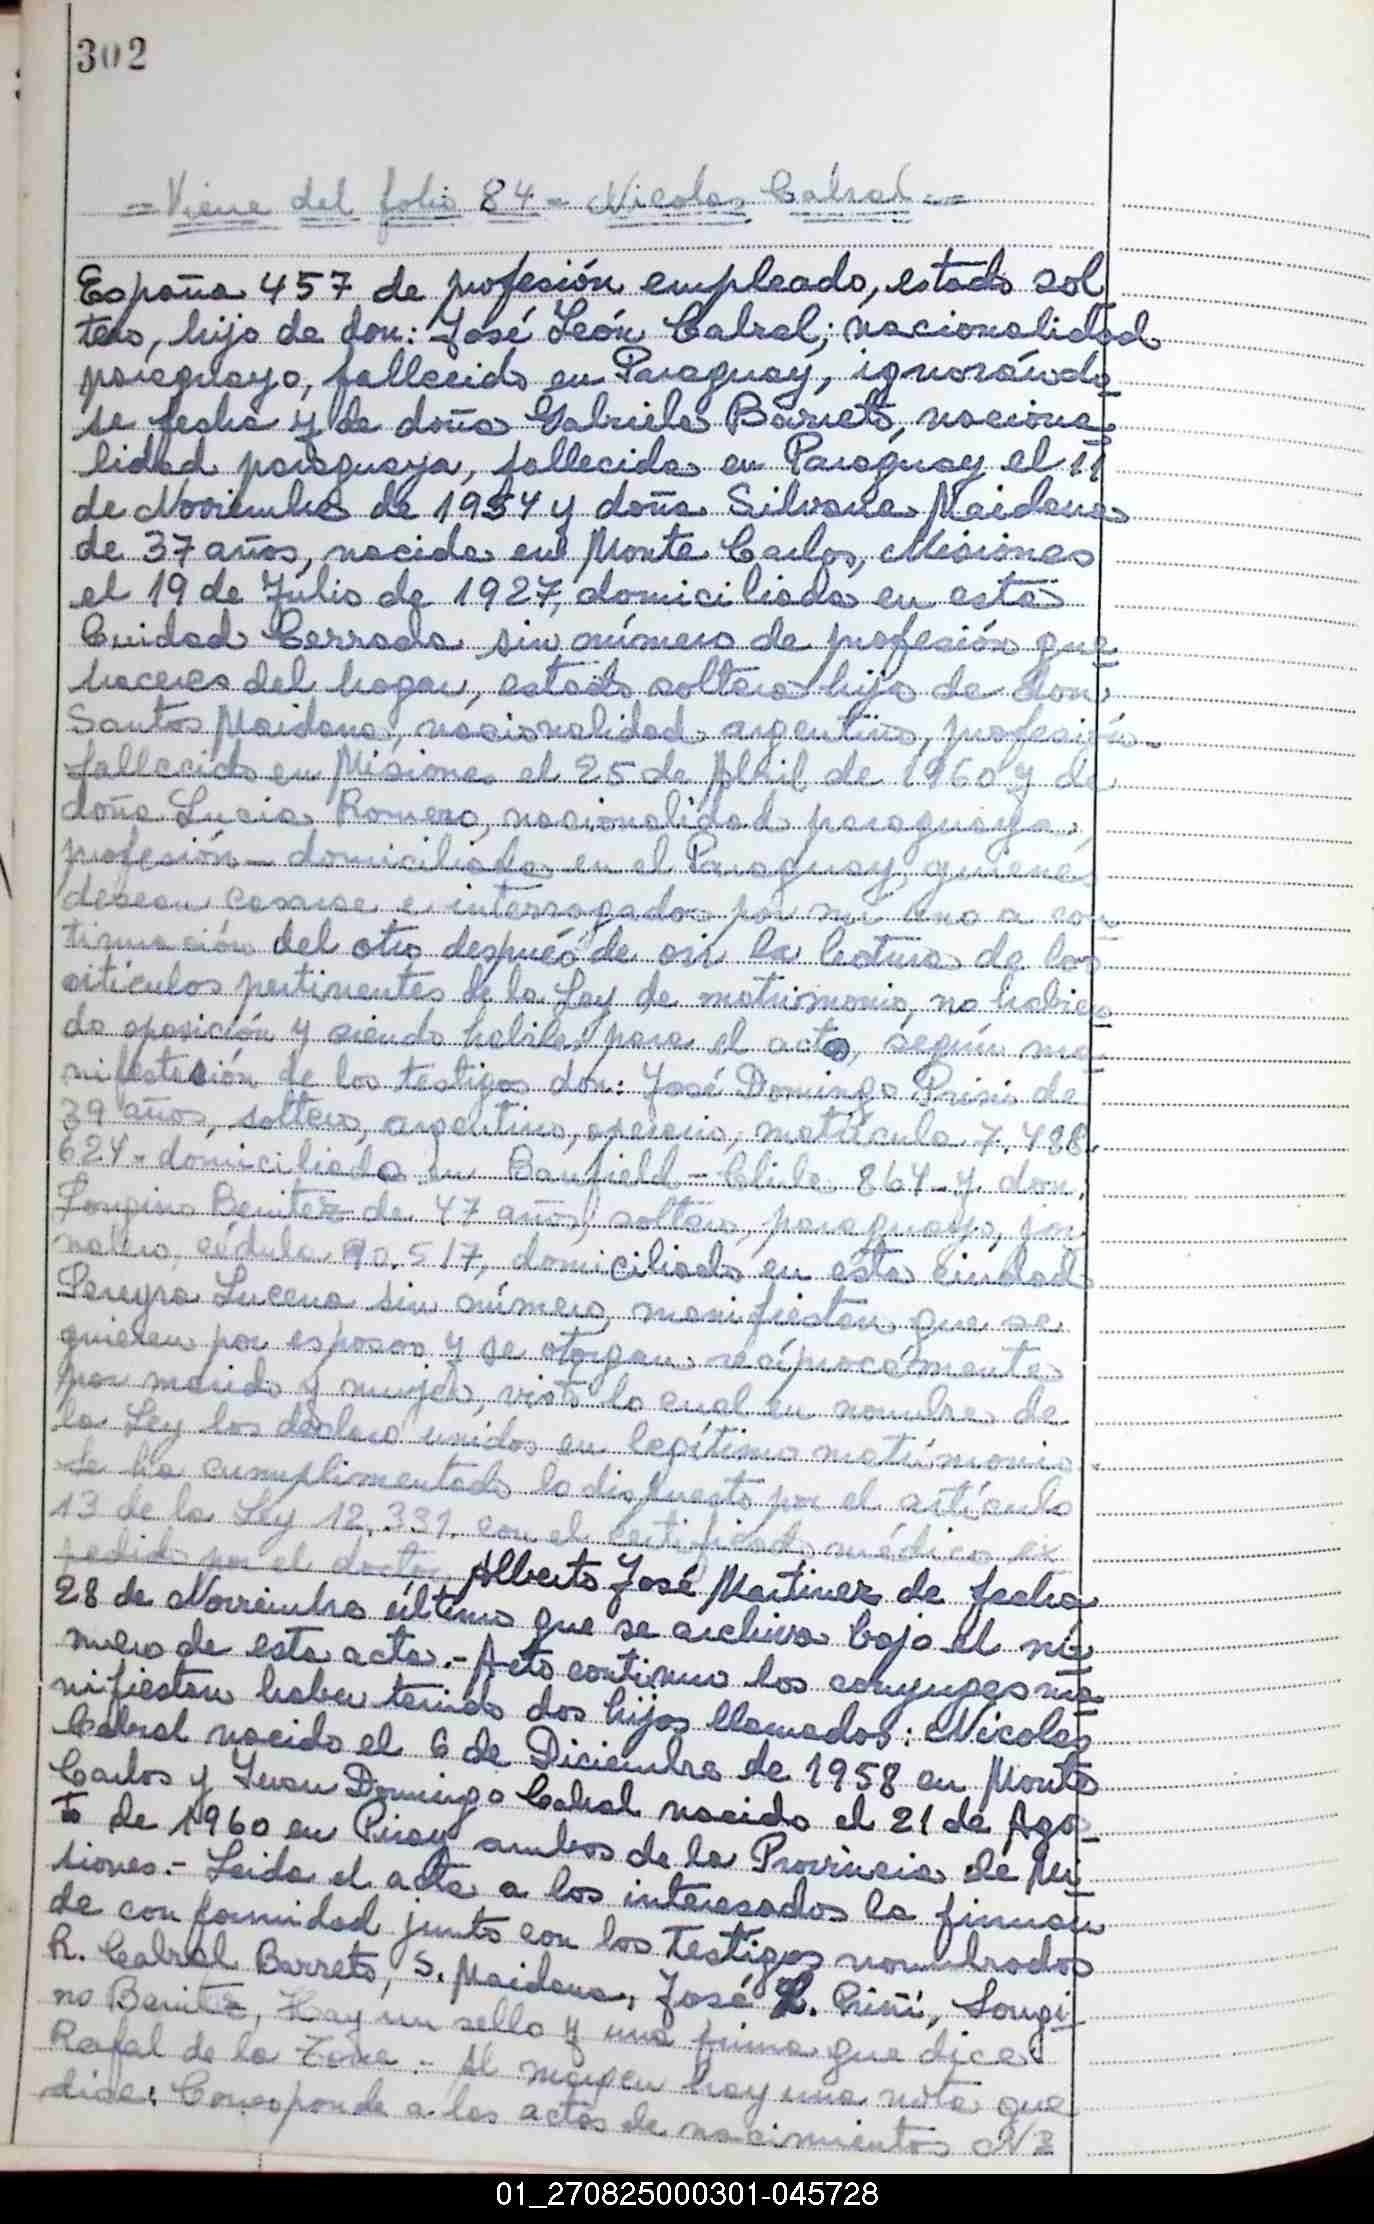 302
=Viene del folio 84= Nicolas Cabral.=
España 457 de profesión empleado, estado sol
tero, hijo de don: José León Cabral; nacionalidad
paraguayo, fallecido en Paraguay, ignorándo
se fecha y de doña Gabriela Barreto, naciona
lidad paraguaya, fallecida en Paraguay el 11
de Noviembre de 1954 y doña Silvana Maidana
de 37 años, nacida en Monte Carlos, Misiones
el 19 de Julio de 1927, domiciliada en esta
Cuidad Cerrada sin número de profesión que
haceres del hogar, estado soltera hija de don
Santos Maidana, nacionalidad argentino, profesión-
fallecido en Misiones el 25 de Abril de 1960 y de
doña Lucia Romero, nacionalidad paraguaya,
profesión- domiciliada en el Paraguay, quienes
desean casarse e interrogados por mi uno a con
tinuación del otro después de oir la lectura de los
artículos pertinentes de la Ley de matrimonio, no habien
do oposición y siendo habiles para el acto, según ma
nifestación de los testigos don: José Domingo Prini de
39 años, soltero, argentino, operario, matrícula 7.488.
624- domiciliado en Banfield- Chile 864- y don.
Longino Benitez de 47 años, soltero, paraguayo, jor
nalero, cédula 90.517, domiciliado en esta ciudad
Pereyra Lucena sin número, manifiestan que se
quieren por esposos y se otorgan recíprocamente
por marido y mujer, visto lo cual en nombre de
la Ley los declaro unidos en legítimo matrimonio.-
Se ha cumplimentado lo dispuesto por el artículo
13 de la Ley 12.331. con el certificado médico ex
pedido por el doctor Alberto José Martinez de fecha
28 de Noviembre último que se archiva bajo el nú
mero de esta acta.- Acto continuo los conyuges ma
nifiestan haber tenido dos hijos llamados: Nicolas
Cabral nacido el 6 de Diciembre de 1958 en Monte
Carlos y Juan Domingo Cabral nacido el 21 de Agos
to de 1960 en Piray ambos de la Provincia de Mi
siones.- Leida el acta a los interesados la firman
de conformidad junto con los Testigos nombrados
R. Cabral Barreto, S. Maidana, José L. Priñi, Longi
no Benitez, Hay un sello y una firma que dice:
Rafal de la Torre.- Al margen hay una nota que
dice: Corresponde a las actas de nacimientos Nº
01_270825000301-045728